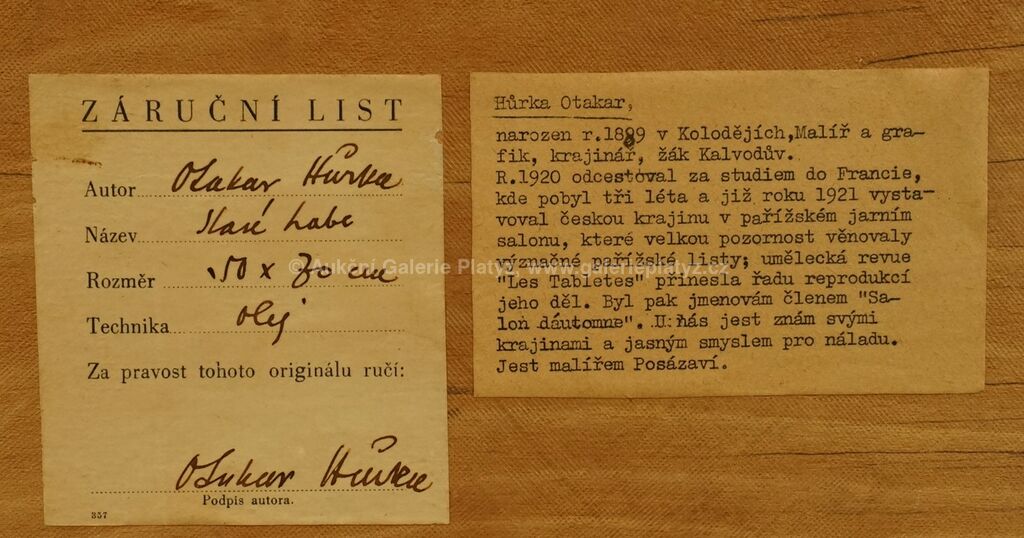 ZÁRUČNÍ LIST
Autor Otakar Hůrka
Název Staré Labe
Rozměr 50 x 70 cm
Technika olej
Za pravost tohoto originálu ručí:
Otakar Hůrka
Podpis autora.
357
Hůrka Otakar,
narozen r.1889 v Kolodějích,Malíř a gra-
fik, krajinář, žák Kalvodův.
R.1920 odcestoval za studiem do Francie,
kde pobyl tři léta a již roku 1921 vysta-
voval českou krajinu v pařížském jarním
salonu, které velkou pozornost věnovaly
význačné pařížské listy; umělecká revue
"Les Tabletes" přinesla řadu reprodukcí
jeho děl. Byl pak jmenovám členem "Sa-
lon dáutomne". U nás jest znám svými
krajinami a jasným smyslem pro náladu.
Jest malířem Posázaví.
© Aukční Galerie Platýz, www.galerieplatyz.cz